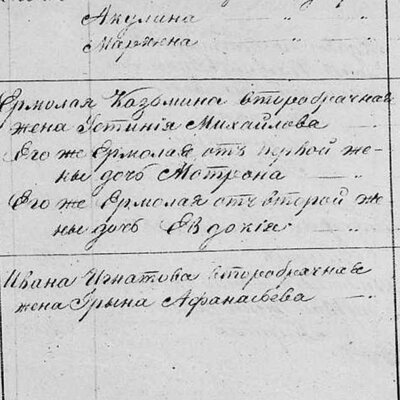 Акулина " "
Марѳена " "
Ермолая Козьмина второбрачная
жена Устинія Михайлова — "
Его же Ермолая отъ первой же-
ны дочь Матрона — "
Его же Ермолая отъ второй же
ны дочь Евдокія — "
Ивана Игнатова второбрачная
жена Ірына Афанасьева — "